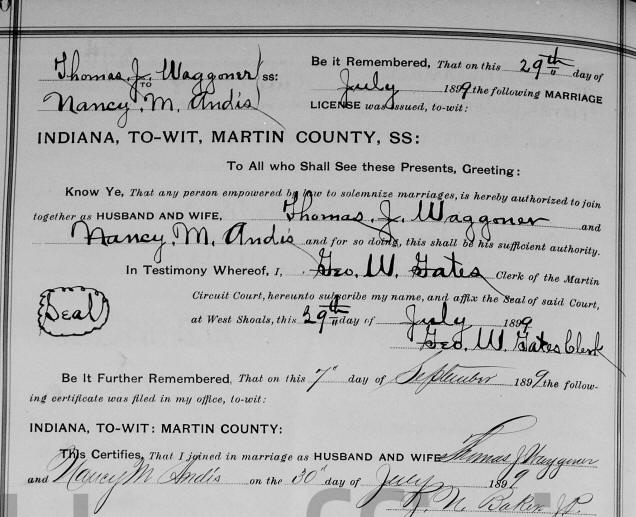 Thomas J. Waggoner
TO
Nancy. M. Andis
SS:
Be it Remembered, That on this 29th day of
July 1899 the following MARRIAGE
LICENSE was issued, to-wit:
INDIANA, TO-WIT, MARTIN COUNTY, SS:
To All who Shall See these Presents, Greeting:
Know Ye, That any person empowered by law to solemnize marriages, is hereby authorized to join
together as HUSBAND AND WIFE, Thomas. J. Waggoner and
Nancy. M. Andis and for so doing, this shall be his sufficient authority.
In Testimony Whereof, I, Geo. W. Gates Clerk of the Martin
Circuit Court, hereunto subscribe my name, and affix the Seal of said Court,
Seal
at West Shoals, this 29th day of July 1899
Geo. W. Gates Clerk
Be it Further Remembered, That on this 7" day of September 1899 the follow-
ing certificate was filed in my office, to-wit:
INDIANA, TO-WIT: MARTIN COUNTY:
This Certifies, That I joined in marriage as HUSBAND AND WIFE Thomas J Waggoner
and Nancy M Andis on the 30" day of July 1899
N. Baker J.P.